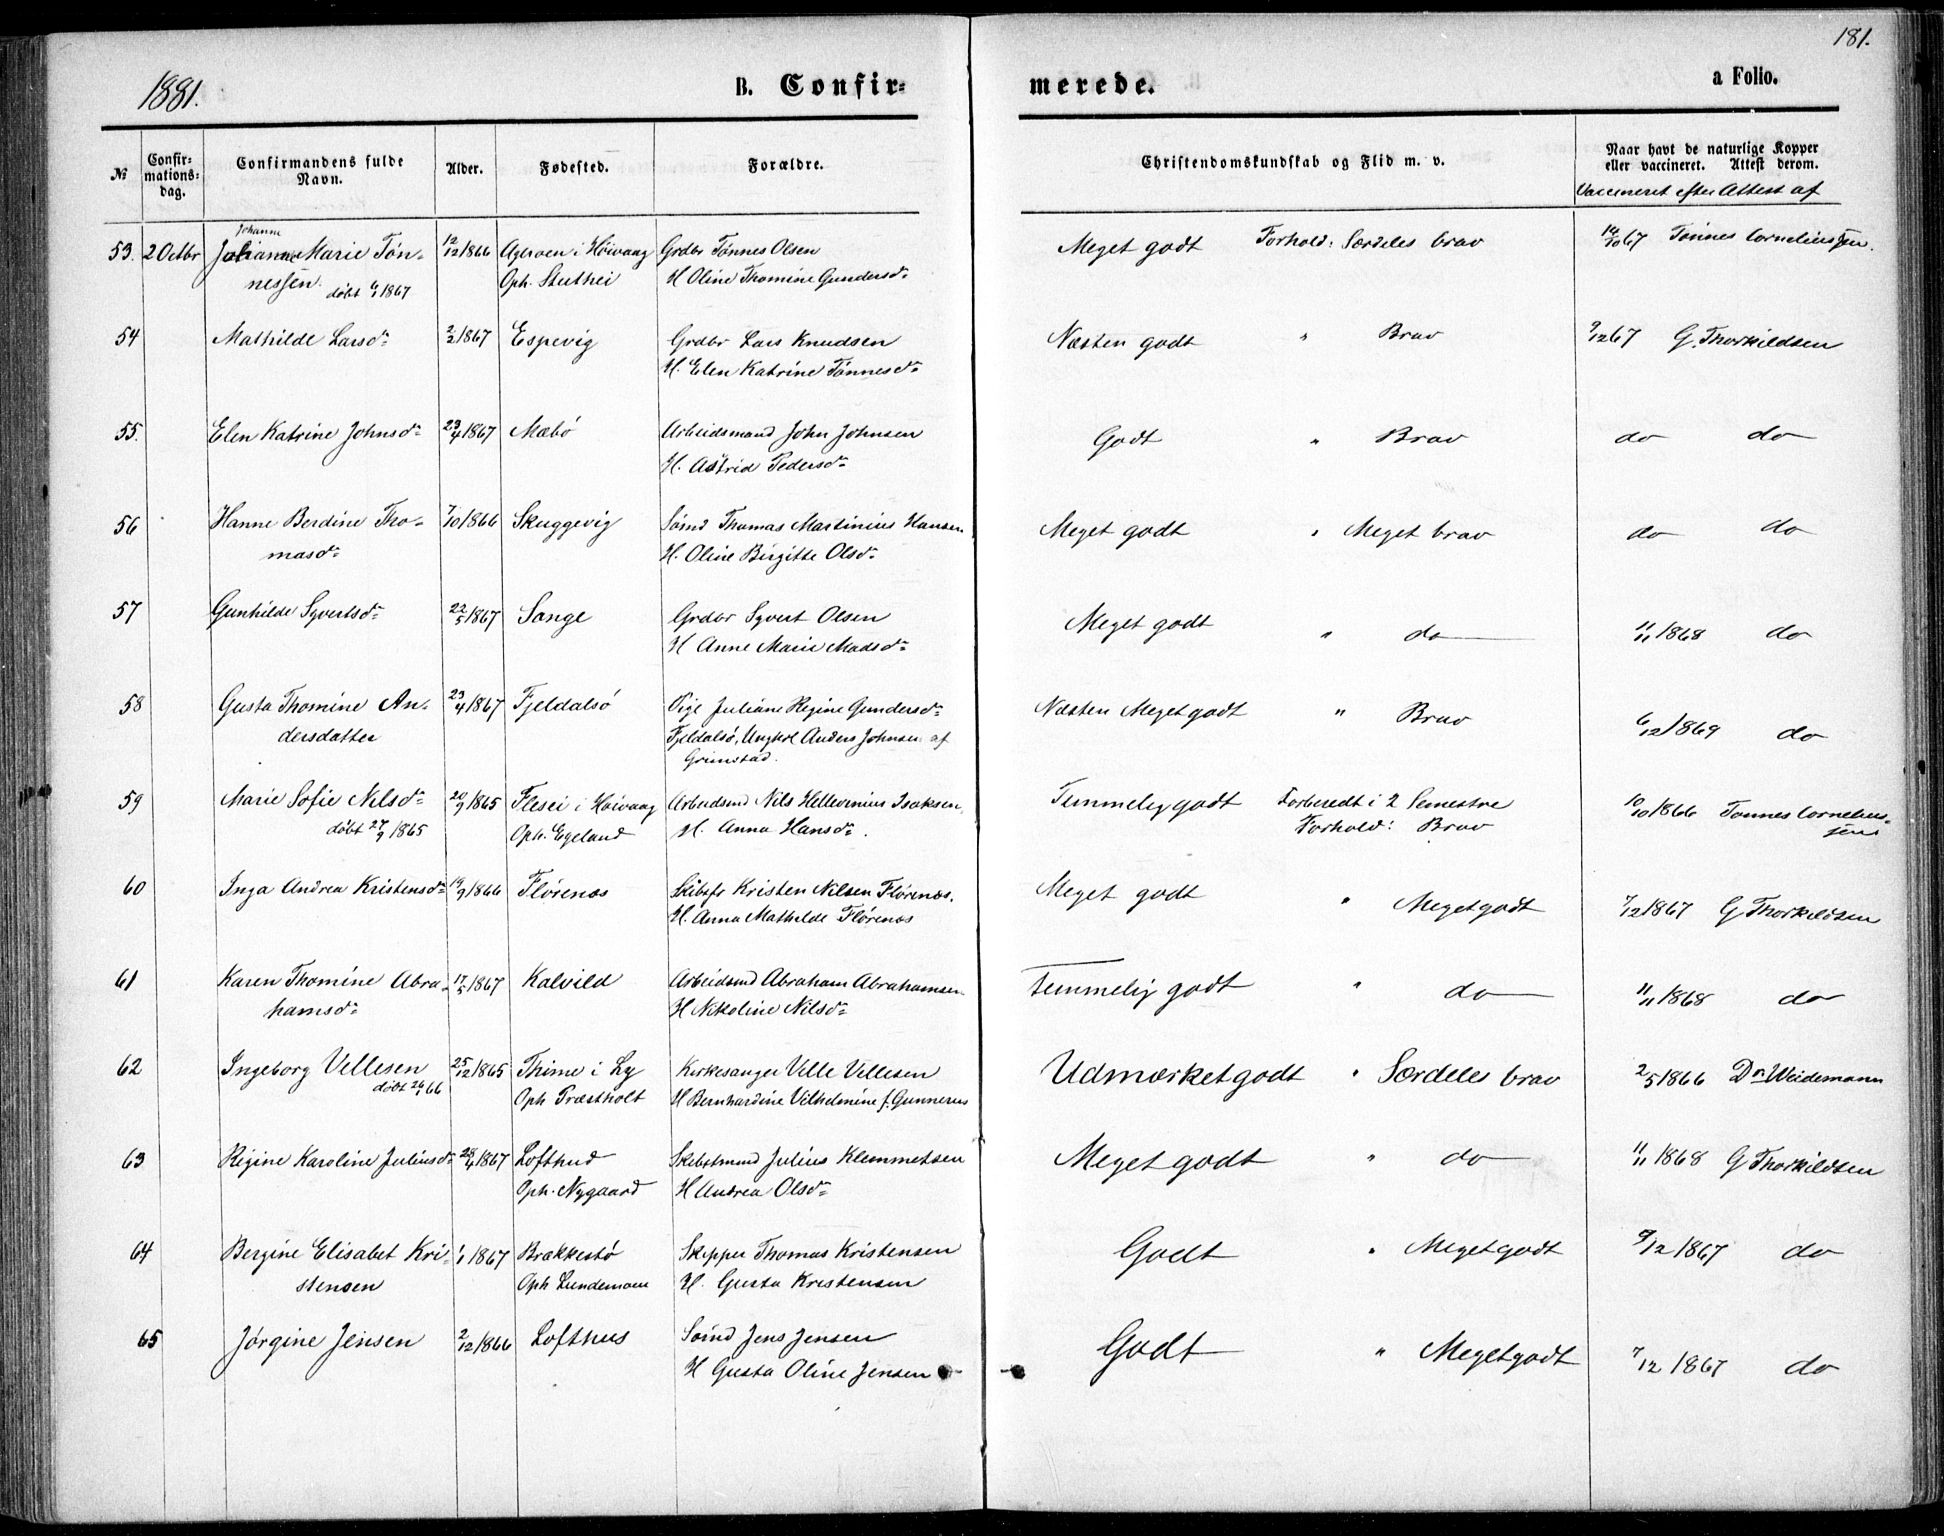 181.
1881.
B. Confir=
merede.
a Folio.
№
Confir=
mations=
dag.
Confirmandens fulde
Navn.
Alder.
Fødested.
Forældre.
Christendomskundskab og Flid m. v.
Naar havt de naturlige Kopper
eller vaccineret. Attest derom.
Vaccineret efter Attest af
Johanne
53. 2 Octbr Marie Tøn- 12/12 1866 Ageroen i Høivaag Grdbr Tønnes Olsen Meget godt Forhold: Særdeles brav 14/10 67 Tønnes Corneliussen.
nessen. døbt 6/1 1867 Oph. Stuthei H Oline Thomine Gundersdr
54 Mathilde Larsdr 2/2 1867 Espevig Grdbr Lars Knudsen Næsten godt " Brav 9/12 67 G. Thorkildsen
H. Elen Katrine Tønnesdr
55. Elen Katrine Johnsdr 23/4 1867 Mæbø Arbeidsmand John Johnsen Godt " Brav do do
H. Astrid Pedersdr
56 Hanne Berdine Tho- 7/10 1866 Skuggevig Sømd Thomas Martinius Hansen Meget godt " Meget brav do do
masdr H. Oline Birgitte Olsdr
57 Gunhilde Syvertsdr 22/5 1867 Sange Grdbr Syvert Olsen Meget godt " do 11/11 1868 do
H Anne Marie Madsdr
58 Gusta Thomine An- 23/4 1867 Fjeldalsø Pige Juliane Regine Gundersdr Næsten Meget godt " Brav 6/12 1869 do
dersdatter Fjeldalsø, Ungkrl Anders Johnsen af
Grimstad.
59 Marie Sofie Nilsdr 20/9 1865 Flesei i Høivaag Arbeidsmd Nils Isaksen Temmelig godt Forberedt i 2 Semestre 10/10 1866 Tønnes Cornelius-
døbt 27/9 1865 Oph. Egeland H. Anna Hansdr. Forhold: Brav sen
60 Inga Andrea Kristensdr 14/9 1866 Flørenæs Skibsfr Kristen Nilsen Flørenæs. Meget godt " Meget godt 7/12 1867 G Thorkildsen
H. Anna Mathilde Flørenæs
61 Karen Thomine Abra- 17/5 1867 Kalvild Arbeidsmd Abraham Abrahamsen Temmelig godt " do 11/11 1868 do
hamsdr H Nikoline Nilsdr
62 Ingeborg Vellesen 25/12 1865 Thime i Ly Kirkesanger Velle Vellesen Udmærket godt " Særdeles brav 2/5 1866 Dr Weidemann
døbt 66 Oph Præstholt H Bernhardine Vilhelmine f. Gunnerus
63 Regine Karoline Juliusdr 1867 Lofthud Skibstmnd Julius Klemmetsen Meget godt " do 11/11 1868 G Thorkildsen
Oph. Nygaard H Andrea Olsdr
64 Bergine Elisabet Kri- 1/1 1867 Brækkestø Skipper Thomas Kristensen Godt " Meget godt 9/12 1867 do
stensen Oph Lundemoen H. Gusta Kristensen
65 Jørgine Jensen 2/12 1866 Lofthus Sømd Jens Jensen Godt " Meget godt 7/12 1867 do
H Gusta Oline Jensen